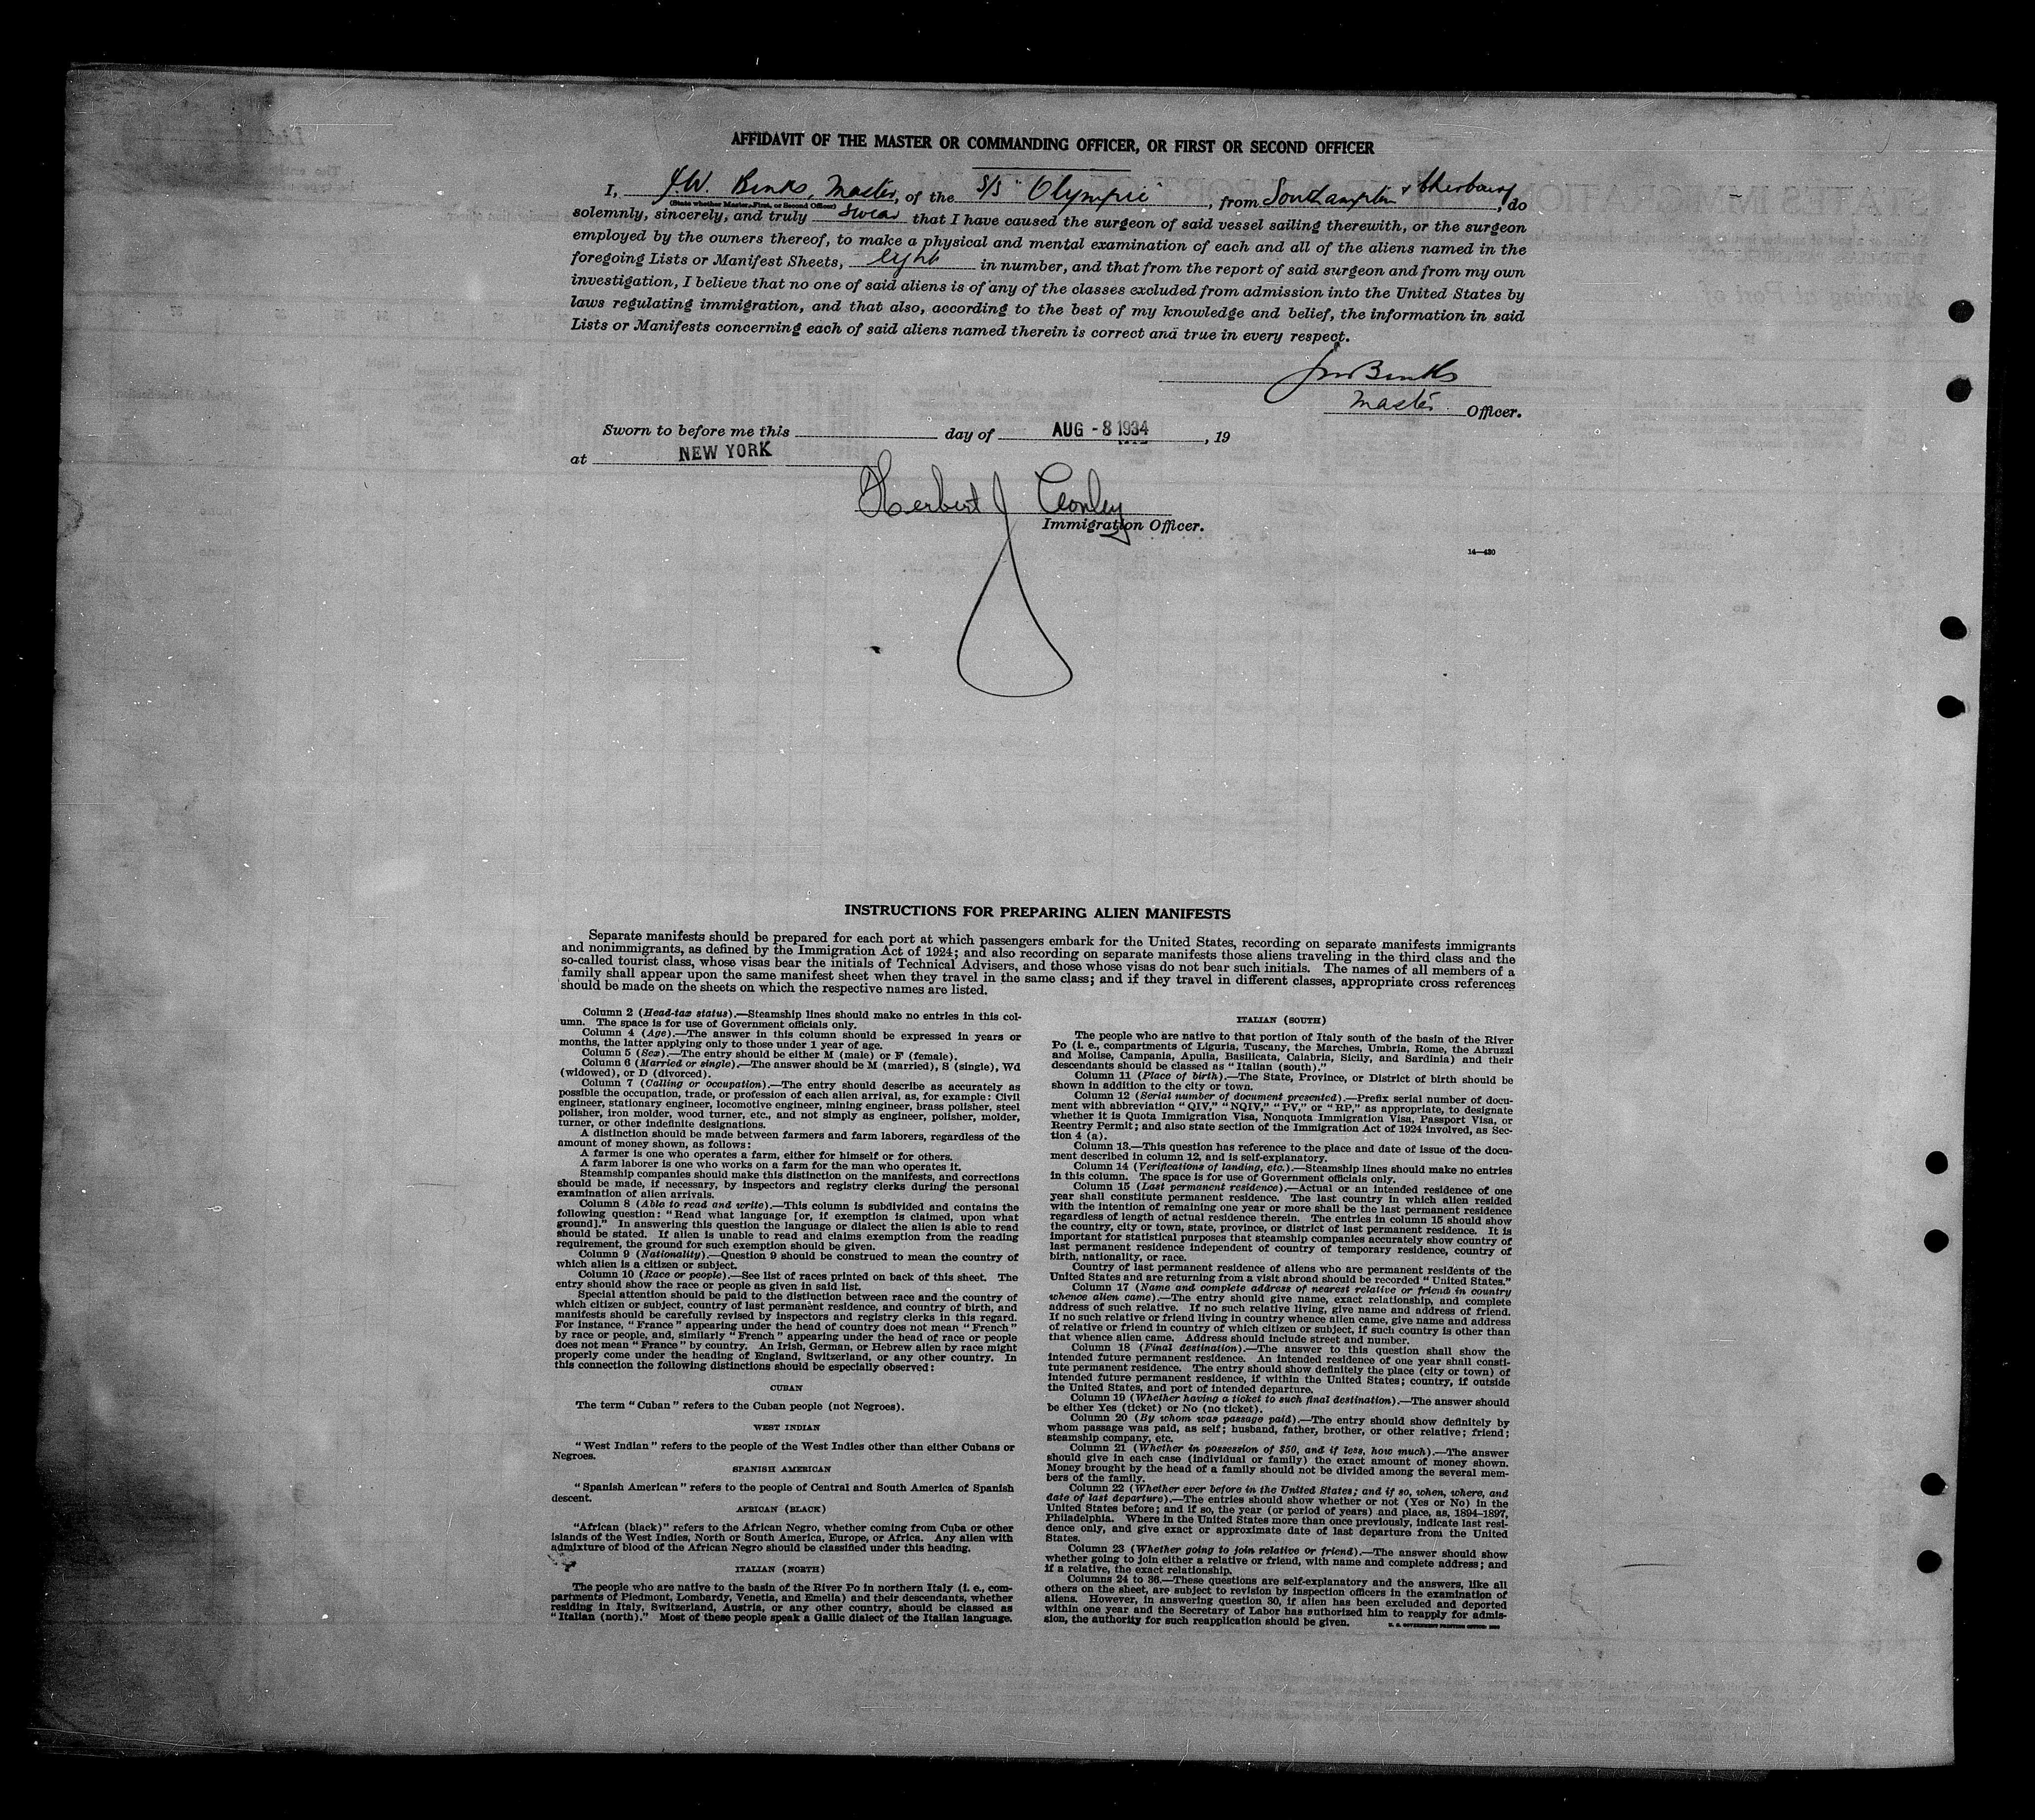 AFFIDAVIT OF THE MASTER OR COMMANDING OFFICER, OR FIRST OR SECOND OFFICER
I, J.W. Binks, Master, of the S/S "Olympic", from Southampton & Cherbourg, do
(State whether Master, First, or Second Officer)
solemnly, sincerely, and truly swear that I have caused the surgeon of said vessel sailing therewith, or the surgeon
employed by the owners thereof, to make a physical and mental examination of each and all of the aliens named in the
foregoing Lists or Manifest Sheets, eight in number, and that from the report of said surgeon and from my own
investigation, I believe that no one of said aliens is of any of the classes excluded from admission into the United States by
laws regulating immigration, and that also, according to the best of my knowledge and belief, the information in said
Lists or Manifests concerning each of said aliens named therein is correct and true in every respect.
JW Binks
Master Officer.
Sworn to before me this day of AUG - 8 1934, 19
at NEW YORK
Herbert J Conley
Immigration Officer.
14—430
INSTRUCTIONS FOR PREPARING ALIEN MANIFESTS
Separate manifests should be prepared for each port at which passengers embark for the United States, recording on separate manifests immigrants
and nonimmigrants, as defined by the Immigration Act of 1924; and also recording on separate manifests those aliens traveling in the third class and the
so-called tourist class, whose visas bear the initials of Technical Advisers, and those whose visas do not bear such initials. The names of all members of a
family shall appear upon the same manifest sheet when they travel in the same class; and if they travel in different classes, appropriate cross references
should be made on the sheets on which the respective names are listed.
Column 2 (Head-tax status).—Steamship lines should make no entries in this col-
umn. The space is for use of Government officials only.
Column 4 (Age).—The answer in this column should be expressed in years or
months, the latter applying only to those under 1 year of age.
Column 5 (Sex).—The entry should be either M (male) or F (female).
Column 6 (Married or single).—The answer should be M (married), S (single), Wd
(widowed), or D (divorced).
Column 7 (Calling or occupation).—The entry should describe as accurately as
possible the occupation, trade, or profession of each alien arrival, as, for example: Civil
engineer, stationary engineer, locomotive engineer, mining engineer, brass polisher, steel
polisher, iron molder, wood turner, etc., and not simply as engineer, polisher, molder,
turner, or other indefinite designations.
A distinction should be made between farmers and farm laborers, regardless of the
amount of money shown, as follows:
A farmer is one who operates a farm, either for himself or for others.
A farm laborer is one who works on a farm for the man who operates it.
Steamship companies should make this distinction on the manifests, and corrections
should be made, if necessary, by inspectors and registry clerks during the personal
examination of alien arrivals.
Column 8 (Able to read and write).—This column is subdivided and contains the
following question: "Read what language [or, if exemption is claimed, upon what
ground]." In answering this question the language or dialect the alien is able to read
should be stated. If alien is unable to read and claims exemption from the reading
requirement, the ground for such exemption should be given.
Column 9 (Nationality).—Question 9 should be construed to mean the country of
which alien is a citizen or subject.
Column 10 (Race or people).—See list of races printed on back of this sheet. The
entry should show the race or people as given in said list.
Special attention should be paid to the distinction between race and the country of
which citizen or subject, country of last permanent residence, and country of birth, and
manifests should be carefully revised by inspectors and registry clerks in this regard.
For instance, "France" appearing under the head of country does not mean "French"
by race or people, and, similarly "French" appearing under the head of race or people
does not mean "France" by country. An Irish, German, or Hebrew alien by race might
properly come under the heading of England, Switzerland, or any other country. In
this connection the following distinctions should be especially observed:
CUBAN
The term "Cuban" refers to the Cuban people (not Negroes).
WEST INDIAN
"West Indian" refers to the people of the West Indies other than either Cubans or
Negroes.
SPANISH AMERICAN
"Spanish American" refers to the people of Central and South America of Spanish
descent.
AFRICAN (BLACK)
"African (black)" refers to the African Negro, whether coming from Cuba or other
islands of the West Indies, North or South America, Europe, or Africa. Any alien with
admixture of blood of the African Negro should be classified under this heading.
ITALIAN (NORTH)
The people who are native to the basin of the River Po in northern Italy (i. e., com-
partments of Piedmont, Lombardy, Venetia, and Emelia) and their descendants, whether
residing in Italy, Switzerland, Austria, or any other country, should be classed as
"Italian (north)." Most of these people speak a Gallic dialect of the Italian language.
ITALIAN (SOUTH)
The people who are native to that portion of Italy south of the basin of the River
Po (i. e., compartments of Liguria, Tuscany, the Marches, Umbria, Rome, the Abruzzi
and Molise, Campania, Apulia, Basilicata, Calabria, Sicily, and Sardinia) and their
descendants should be classed as "Italian (south)."
Column 11 (Place of birth).—The State, Province, or District of birth should be
shown in addition to the city or town.
Column 12 (Serial number of document presented).—Prefix serial number of docu-
ment with abbreviation "QIV," "NQIV," "PV," or "RP," as appropriate, to designate
whether it is Quota Immigration Visa, Nonquota Immigration Visa, Passport Visa, or
Reentry Permit; and also state section of the Immigration Act of 1924 involved, as Sec-
tion 4 (a).
Column 13.—This question has reference to the place and date of issue of the docu-
ment described in column 12, and is self-explanatory.
Column 14 (Verifications of landing, etc.).—Steamship lines should make no entries
in this column. The space is for use of Government officials only.
Column 15 (Last permanent residence).—Actual or an intended residence of one
year shall constitute permanent residence. The last country in which alien resided
with the intention of remaining one year or more shall be the last permanent residence
regardless of length of actual residence therein. The entries in column 15 should show
the country, city or town, state, province, or district of last permanent residence. It is
important for statistical purposes that steamship companies accurately show country of
last permanent residence independent of country of temporary residence, country of
birth, nationality, or race.
Country of last permanent residence of aliens who are permanent residents of the
United States and are returning from a visit abroad should be recorded "United States."
Column 17 (Name and complete address of nearest relative or friend in country
whence alien came).—The entry should give name, exact relationship, and complete
address of such relative. If no such relative living, give name and address of friend.
If no such relative or friend living in country whence alien came, give name and address
of relative or friend in country of which citizen or subject, if such country is other than
that whence alien came. Address should include street and number.
Column 18 (Final destination).—The answer to this question shall show the
intended future permanent residence. An intended residence of one year shall consti-
tute permanent residence. The entry should show definitely the place (city or town) of
intended future permanent residence, if within the United States; country, if outside
the United States, and port of intended departure.
Column 19 (Whether having a ticket to such final destination).—The answer should
be either Yes (ticket) or No (no ticket).
Column 20 (By whom was passage paid).—The entry should show definitely by
whom passage was paid, as self; husband, father, brother, or other relative; friend;
steamship company, etc.
Column 21 (Whether in possession of $50, and if less, how much).—The answer
should give in each case (individual or family) the exact amount of money shown.
Money brought by the head of a family should not be divided among the several mem-
bers of the family.
Column 22 (Whether ever before in the United States; and if so, when, where, and
date of last departure).—The entries should show whether or not (Yes or No) in the
United States before; and if so, the year (or period of years) and place, as, 1894–1897,
Philadelphia. Where in the United States more than once previously, indicate last resi-
dence only, and give exact or approximate date of last departure from the United
States.
Column 23 (Whether going to join relative or friend).—The answer should show
whether going to join either a relative or friend, with name and complete address; and
if a relative, the exact relationship.
Columns 24 to 36.—These questions are self-explanatory and the answers, like all
others on the sheet, are subject to revision by inspection officers in the examination of
aliens. However, in answering question 30, if alien has been excluded and deported
within one year and the Secretary of Labor has authorized him to reapply for admis-
sion, the authority for such reapplication should be given.
U. S. GOVERNMENT PRINTING OFFICE